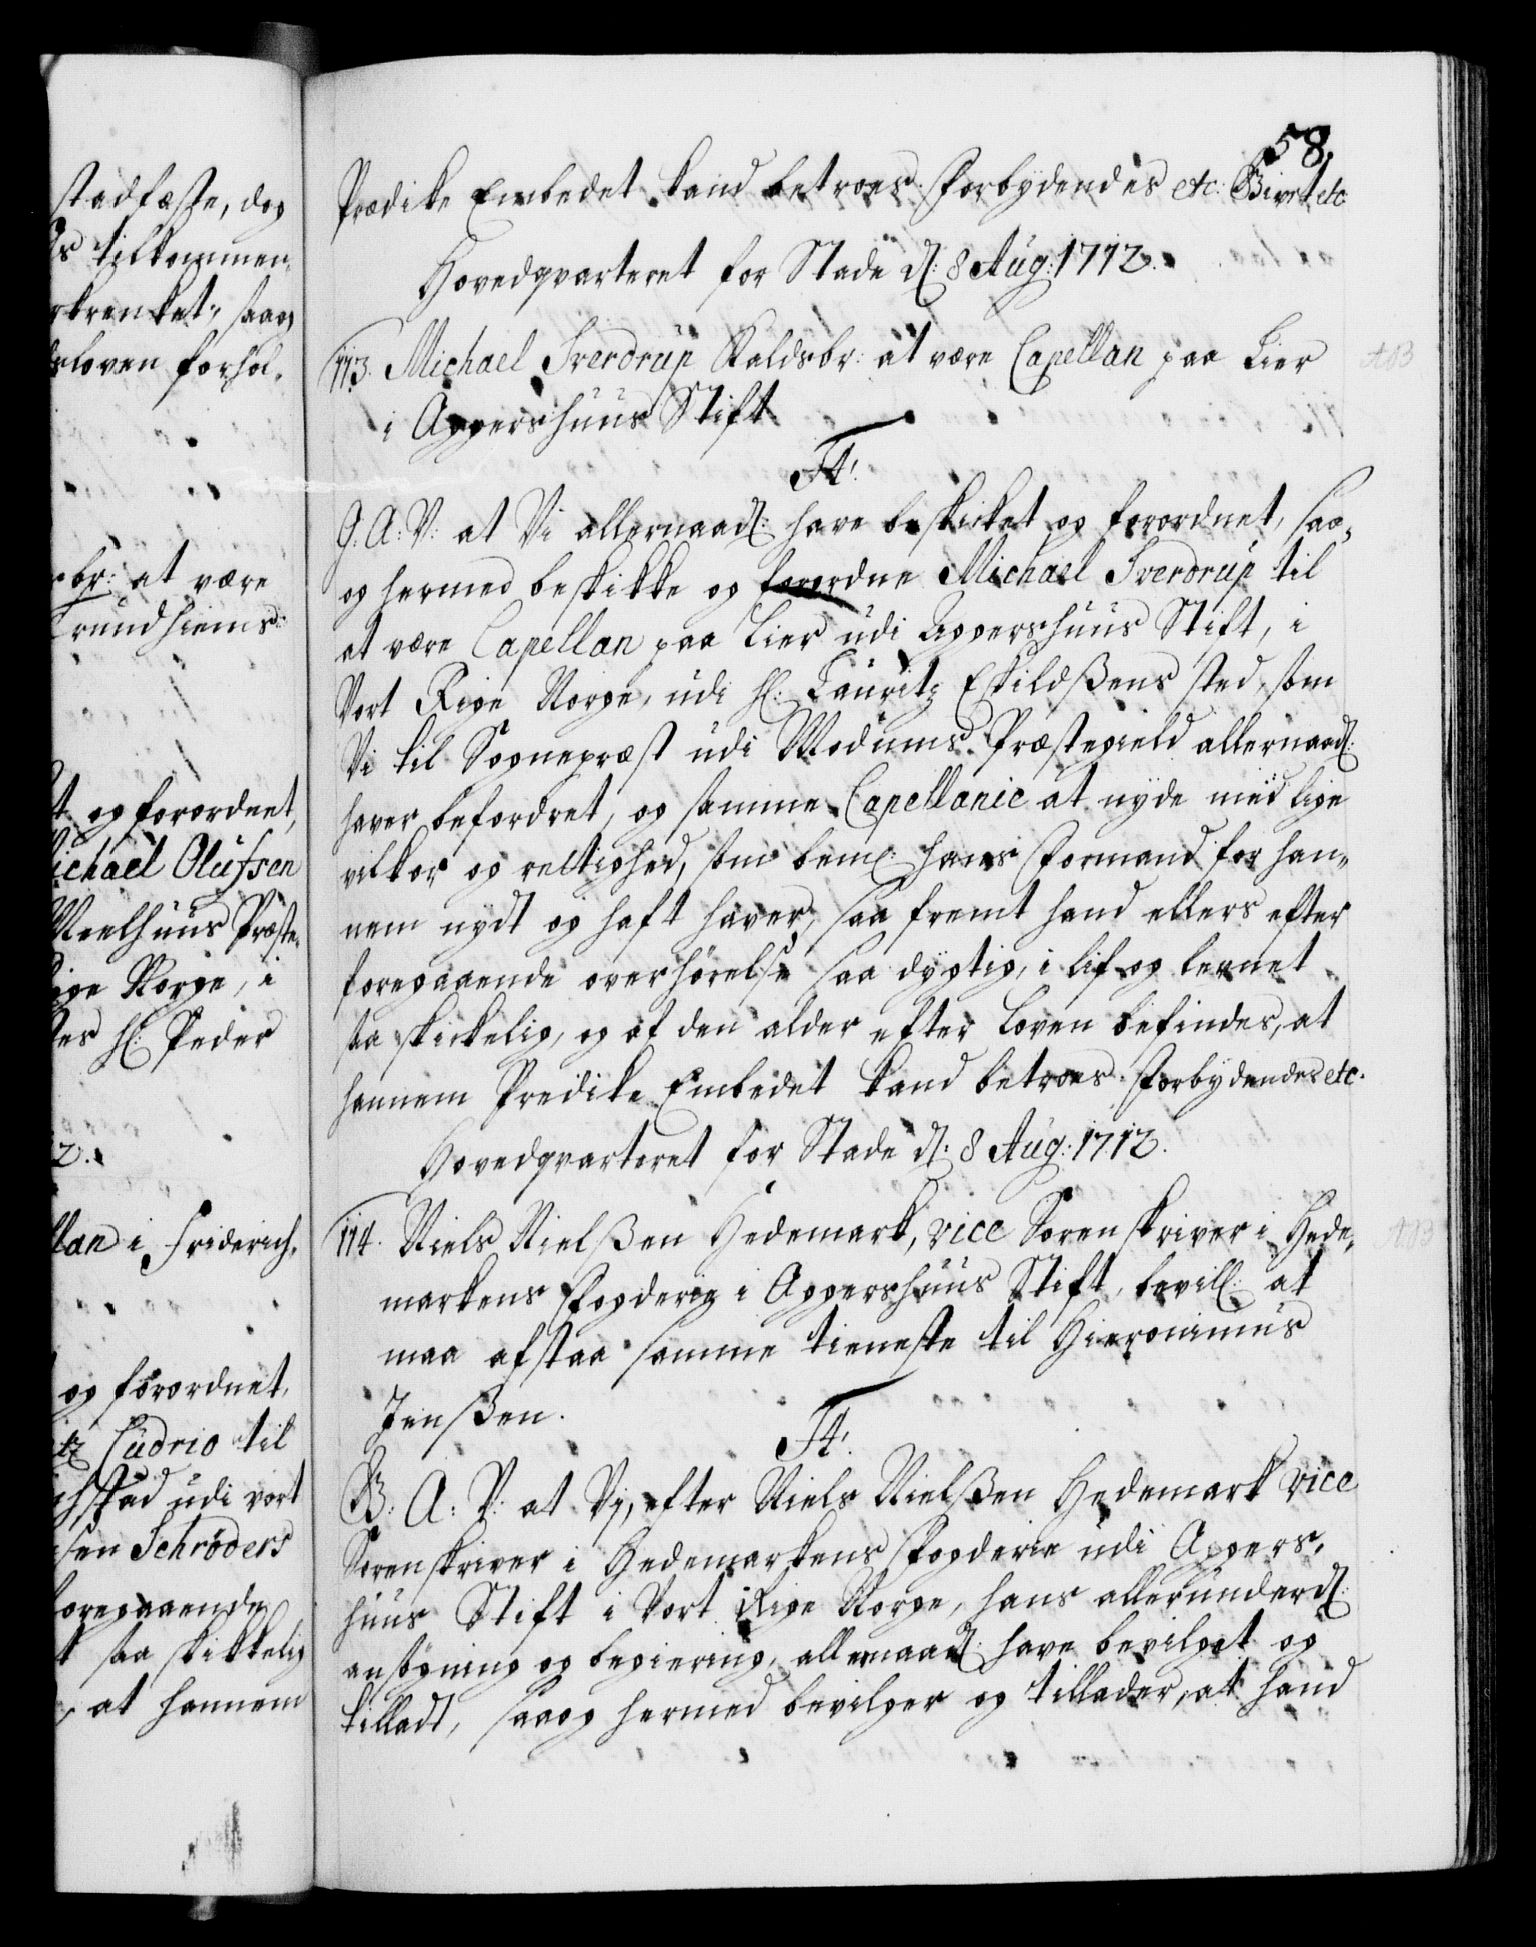 stadfæste, dog
Os tilkommen,
rkrenket, saa og
sloven forhol,
br: at være
Trundhiems
t og forordnet,
ichael Olufsen
Meelhuus Præste,
ige Norge, i
es Hr: Peder
2.
lan i Friderich,
og forordnet,
tz Cudrio til
chstad udi vort
sen Schrøders
foregaaende
t saa skikkelig
, at hannem
58,
Prædike Embedet kand betroes. Forbydendes etc: Givet etc
Hovedqvarteret for Stade d: 8 Aug: 1712.
113. Michael Sverdrup Kaldsbr: at være Capellan paa Lier
i Aggershuus Stift
F4!
G. A: V: at Vi allernaad: have beskicket og forordnet, saa,
og hermed beskikke og forordne Michael Sverdrup til
at være Capellan paa Lier udi Aggershuus Stift, i
Vort Rige Norge, udi Hr: Lauritz Eskildßens sted, som
Vi til Sognepræst udi Modums Præstegield allernaad:
haver befordret, og samme Capellanie at nyde med lige
vilkor og rettighed, som bem: hans Formand for han,
nem nydt og haft haver, saa fremt hand ellers efter
foregaaende overhørelse saa dygtig, i lif og lernet
saa skickelig, og af den alder efter Loven befindes, at
hannem Predike Embedet kand betroes. Forbydendes etc.
Hovedqvarteret for Stade d: 8 Aug: 1712.
114. Niels Nielßen Hedemark, vice Sorenskriver i Hede,
markens Fogderie i Aggershuus Stift, bevill: at
maa afstaa samme tieneste til Hieronimus
Jenßen.
F4!
G: A: V: at Vj, efter Niels Nielßen Hedemark vice
Sorenskriver i Hedemarkens Fogderie udi Aggers,
huus Stift i Vort Rige Norge, hans allerunderd:
ansøgning og begiering, allernaad: have bevilget og
tilladt, saa og hermed bevilger og tillader, at hand